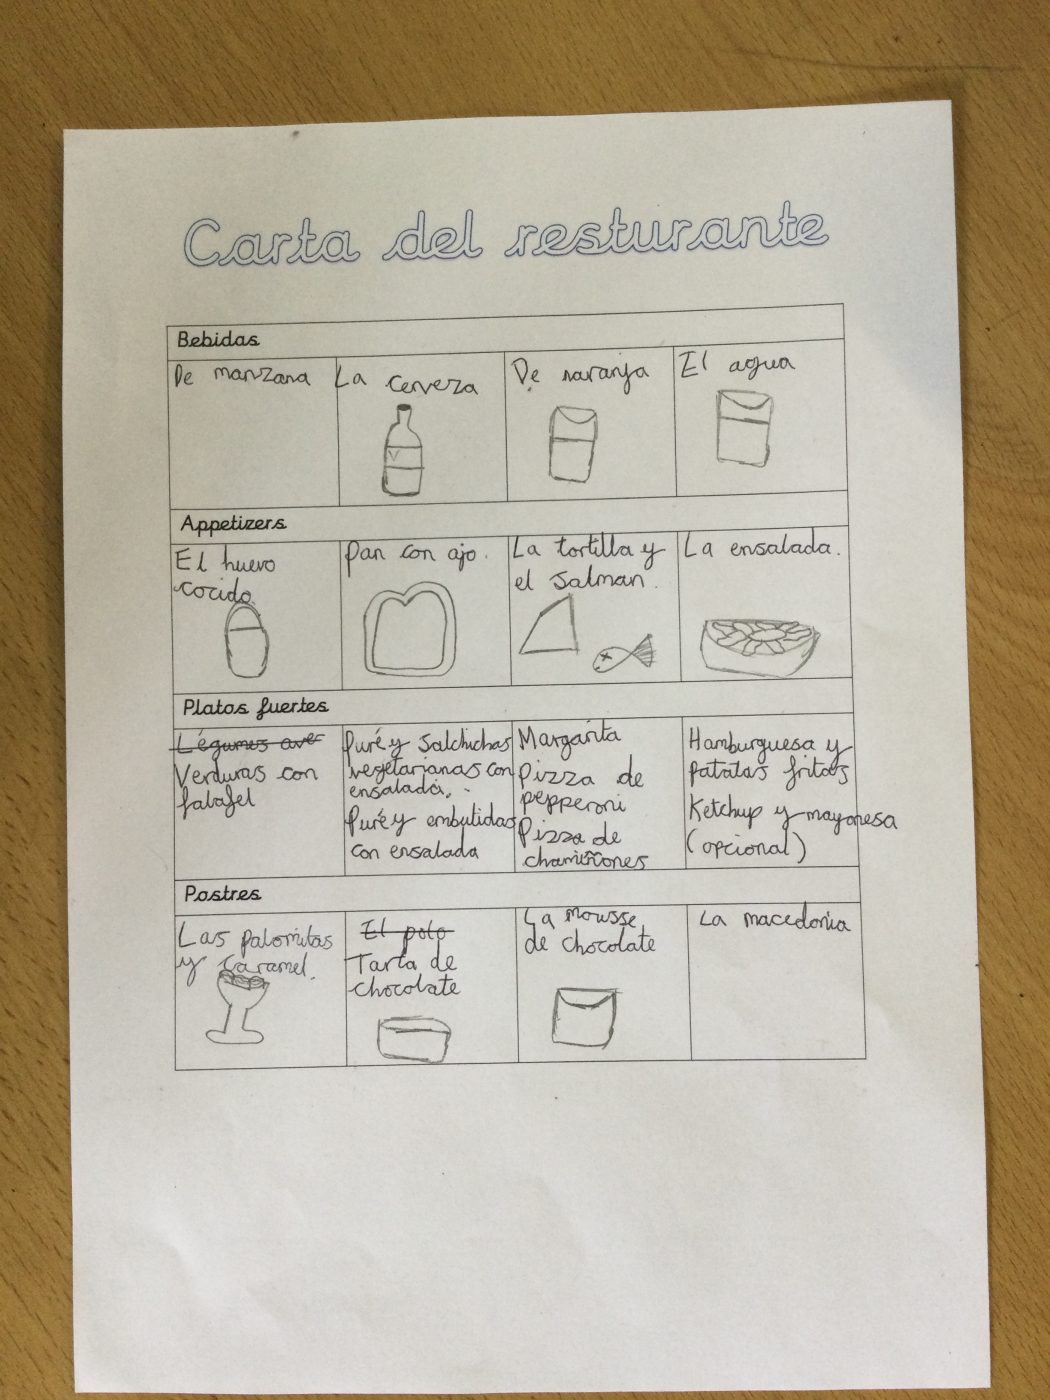 Carta del resturante
Bebidas
De manzana
La cerveza
De naranja
El agua
Appetizers
El huevo
cocido
Pan con ajo.
La tortilla y
el salman.
La ensalada.
Platos fuertes
Légumes avec
Verduras con
falafel
Puré y Salchichas
vegetarianas con
ensalada.
Puré y embutidas
con ensalada
Margarita
Pizza de
pepperoni
Pizza de
Hamburguesa y
patatas fritas
Ketchup y mayonesa
(opcional)
Postres
Las palomitas
y caramel.
El polo
Tarta de
chocolate
La mousse
de chocolate
La macedonia